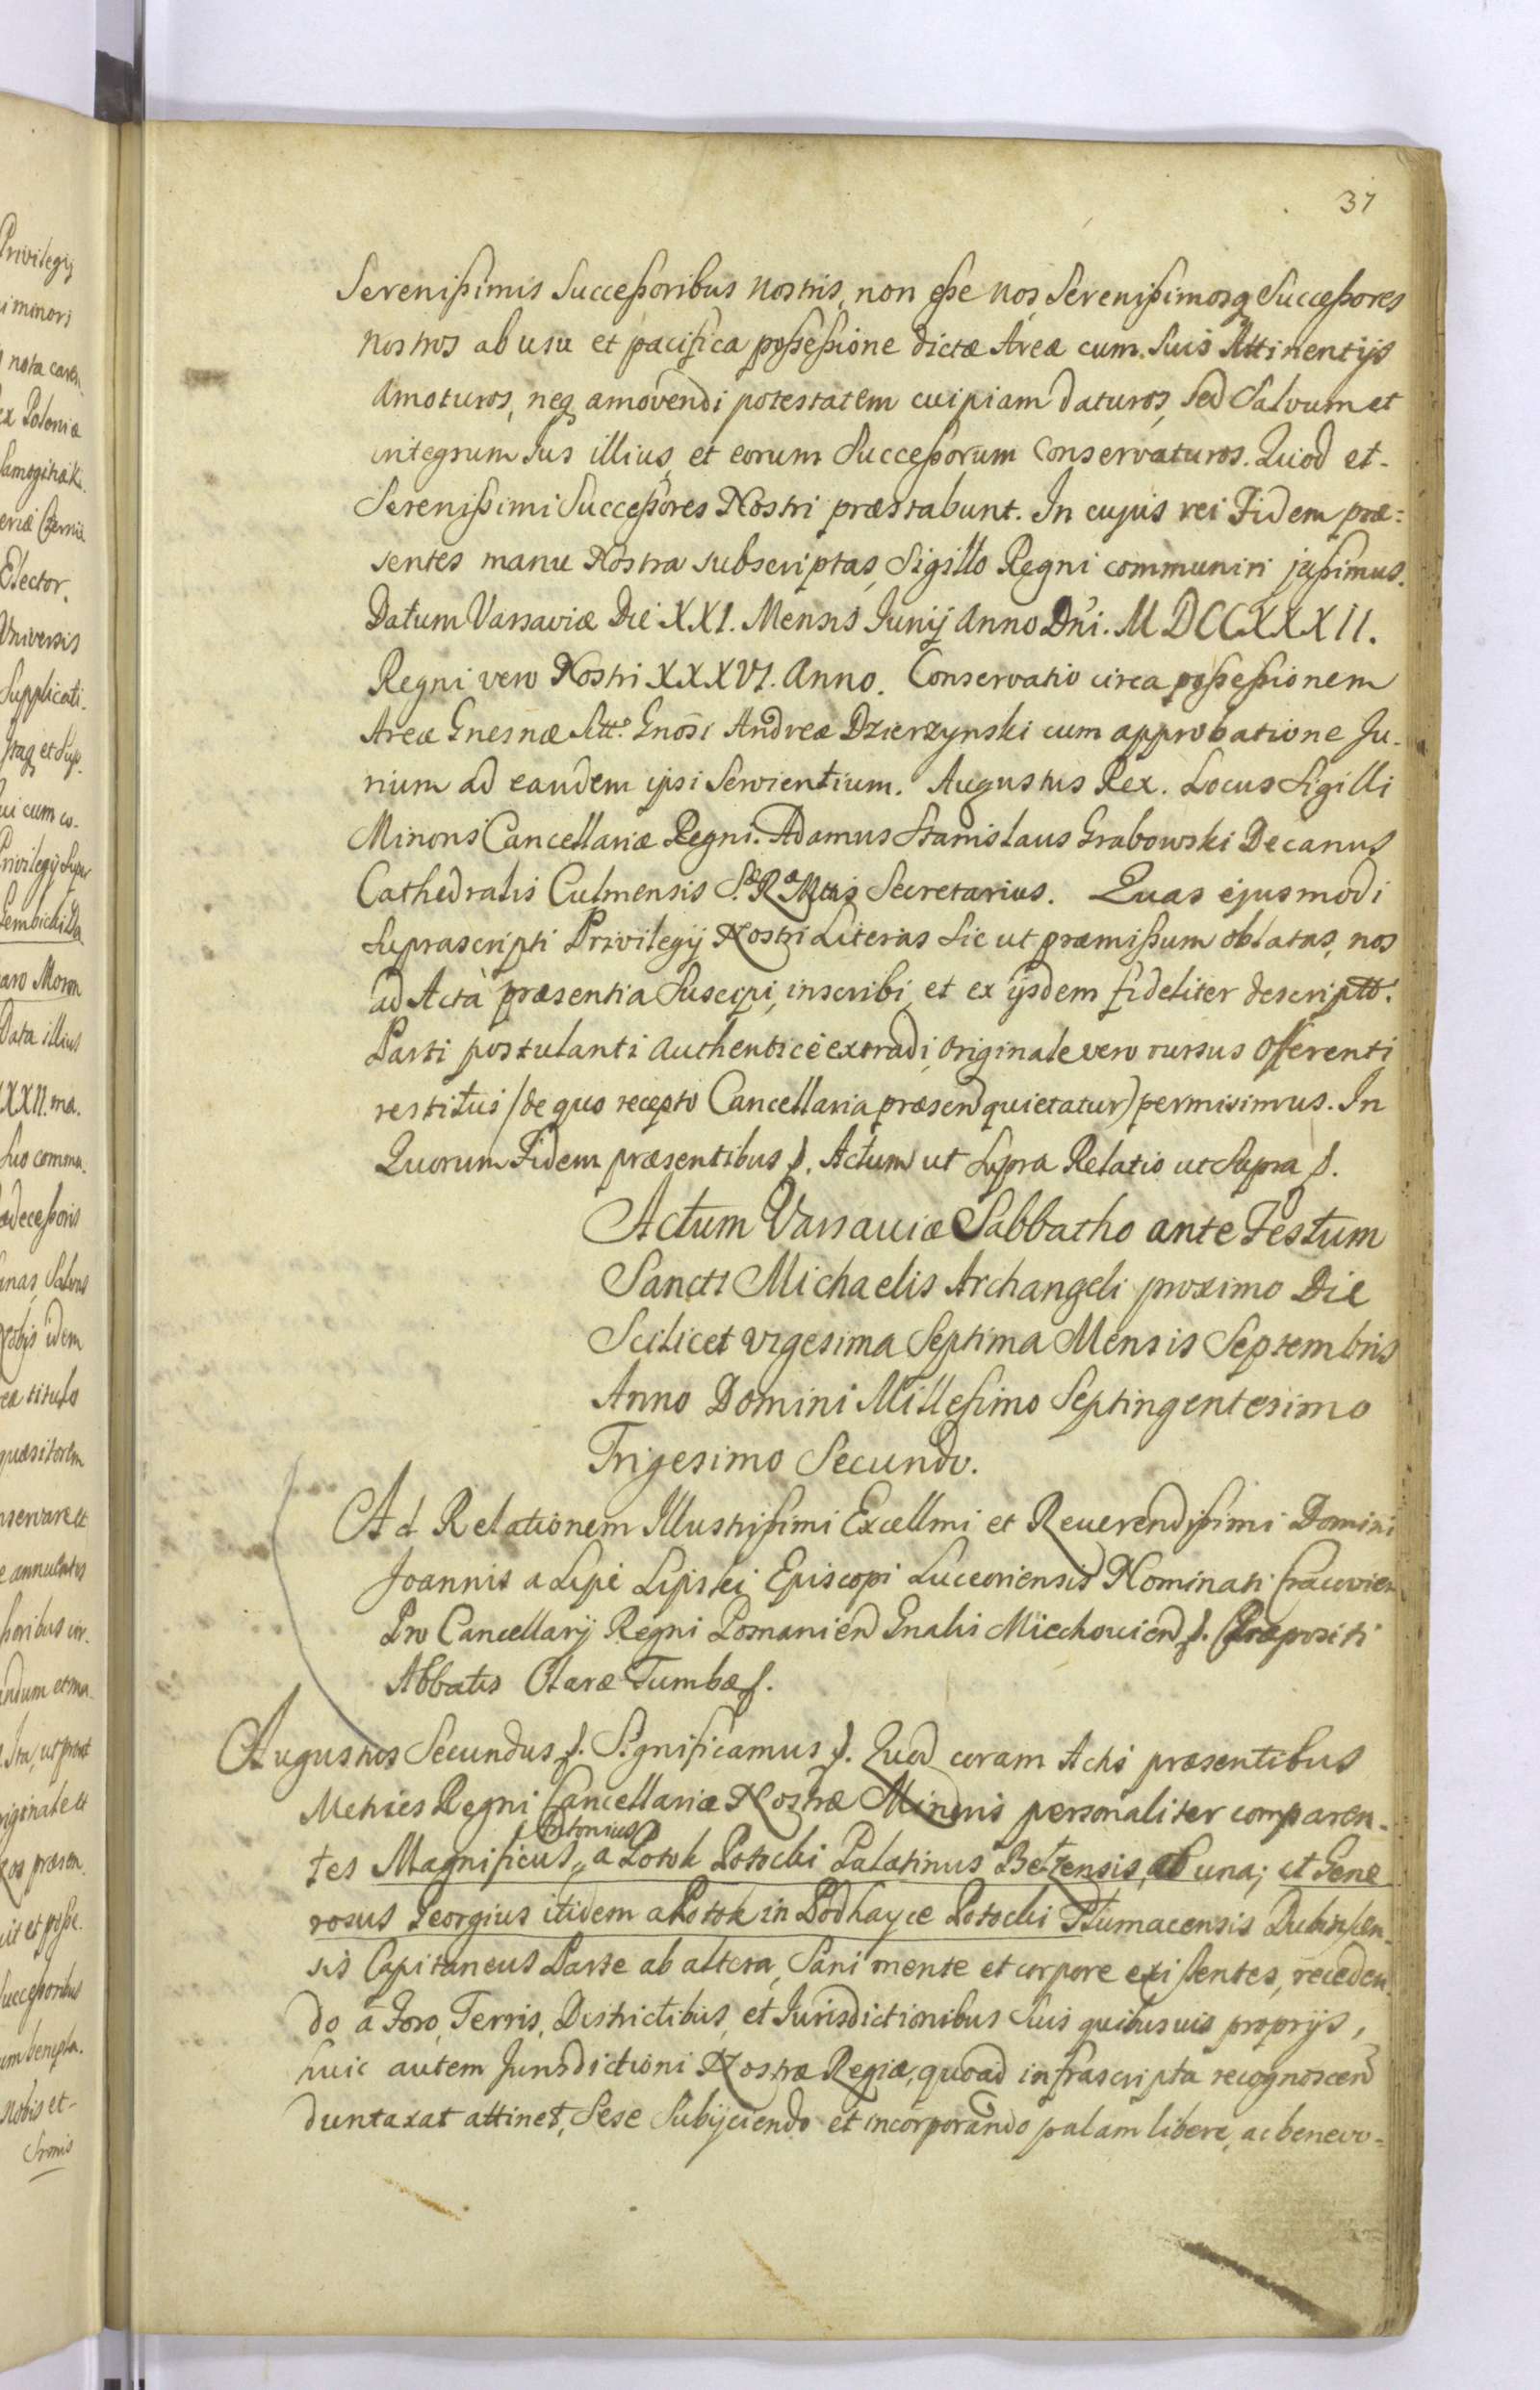 37
Serenißimis Succeßoribus nostris, non eße nos, Serenißimosq Succeßores
nostros ab usu et pacifica poßeßione dictæ Areæ cum Suis Attinentijs
amoturos, neq amovendi potestatem cuipiam daturos, Sed Salvum et
integrum Jus illius, et eorum Succeßorum Conservaturos. Quod et
Serenißimi Succeßores Nostri præstabunt. In cujus rei Fidem præ=
sentes manu Nostra subscriptas, Sigillo Regni communiri jußimus.
Datum Varsaviæ Die XXI. Mensis Junij Anno Dńi. M DCCXXXII.
Regni vero Nostri XXXVI. Anno. Conservatio circa poßeßionem
Areæ Gnesnæ Sitt. Gnosi Andreæ Dzierzynski cum approbatione Ju-
rium ad eandem ipsi Servientium. Augustus Rex. Locus Sigilli
Minoris Cancellariæ Regni. Adamus Stanislaus Grabowski Decanus
Cathedralis Culmensis S. R. Mttis Secretarius. Quas ejusmodi
Suprascripti Privilegij Nostri Literas Sic ut præmißum oblatas, nos
ad Acta præsentia Suscipi, inscribi, et ex ijsdem fideliter descriptt.
Parti postulanti authenticè extradi, originale vero rursus Offerenti
restitui (de quo recepto Cancellaria præsen quietatur) permisimus. In
Quorum Fidem præsentibus f. Actum ut Supra Relatio ut Supra f.
Actum Varsaviæ Sabbatho ante Festum
Sancti Michaelis Archangeli proximo Die
Scilicet vigesima Septima Mensis Septembris
Anno Domini Milleßimo Septingentesimo
Trigesimo Secundo.
Ad Relationem Illustrißimi Excellmi et Reuerendißimi Domini
Joannis a Lipe Lipski Episcopi Luceoriensis Nominati Cracovien
Pro Cancellarij Regni Posnanien Gnalis Miechovien f. Præpositi
Abbatis Claræ Tumbæ f.
Augustus Secundus f. Significamus f. Quod coram Actis præsentibus
Metrices Regni Cancellariæ Nostræ Minoris personaliter comparen-
Antonius
tes Magnificus a Potok Potocki Palatinus Belzensis, ab una; et Gene
rosus Georgius itidem a Potok in Podhayce Potocki Tlumacensis
sis Capitaneus Parte ab altera, Sani mente et corpore existentes, receden
do a Foro, Terris, Districtibus, et Jurisdictionibus Suis quibusuis proprijs,
huic autem Jurisdictioni Nostræ Regiæ, quoad infrascripta recognoscend
duntaxat attinet, Sese Subijciendo et incorporando palam libere, ac benevo=